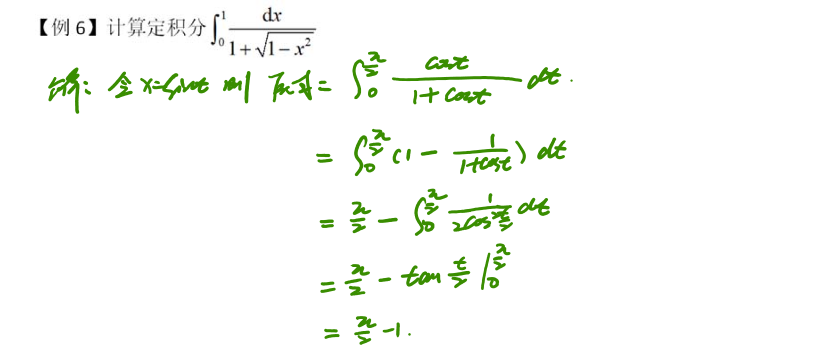 【例 6】计算定积分 \int_0^1 \frac{dx}{1+\sqrt{1-x^2}}
解：令 x=sint 则 原式 = \int_0^{\frac{π}{2}} \frac{cost}{1+cost} dt.
= \int_0^{\frac{π}{2}} (1 - \frac{1}{1+cost}) dt
= \frac{π}{2} - \int_0^{\frac{π}{2}} \frac{1}{2cos^2\frac{t}{2}} dt
= \frac{π}{2} - tan\frac{t}{2} |_0^{\frac{π}{2}}
= \frac{π}{2} -1.